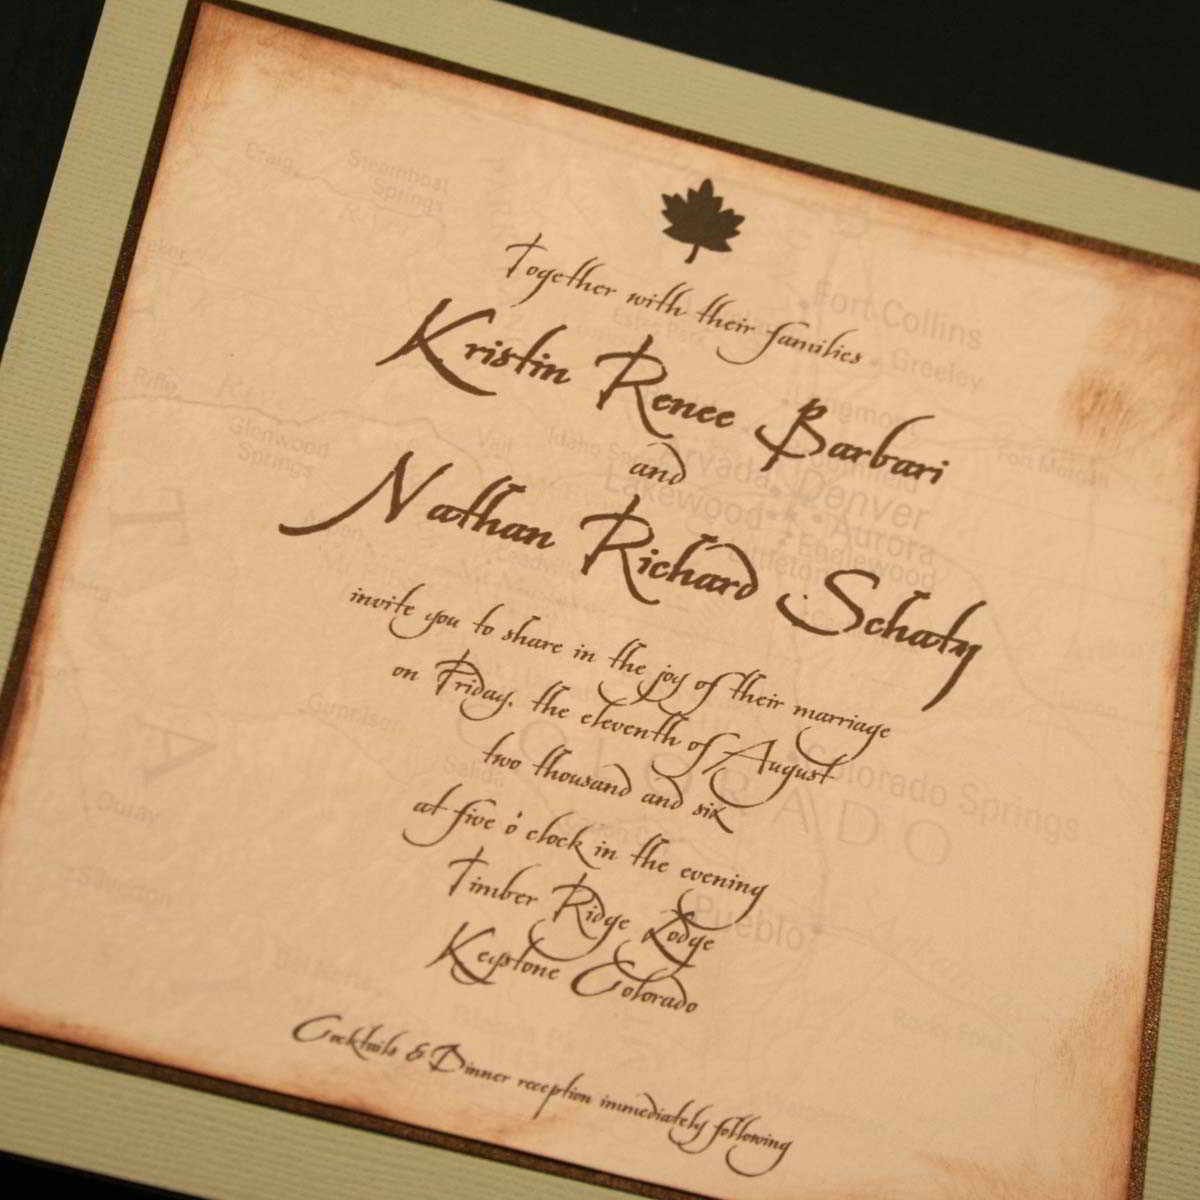 Together with their families
Kristin Renee Barbari
and
Nathan Richard Schaty
invite you to share in the joy of their marriage
on Friday, the eleventh of August
two thousand and six
at five o'clock in the evening
Timber Ridge Lodge
Keystone Colorado
Cocktails & Dinner reception immediately following
Craig
Steamboat
Springs
Fort Collins
Greeley
Estes Park
Longmont
Rifle
Glenwood
Springs
Vail
Idaho
Arvada
Denver
Lakewood
Aurora
Englewood
Littleton
Fort Morgan
Gunnison
Salida
COLORADO
Colorado Springs
Ouray
Silverton
Pueblo
Rocky Ford